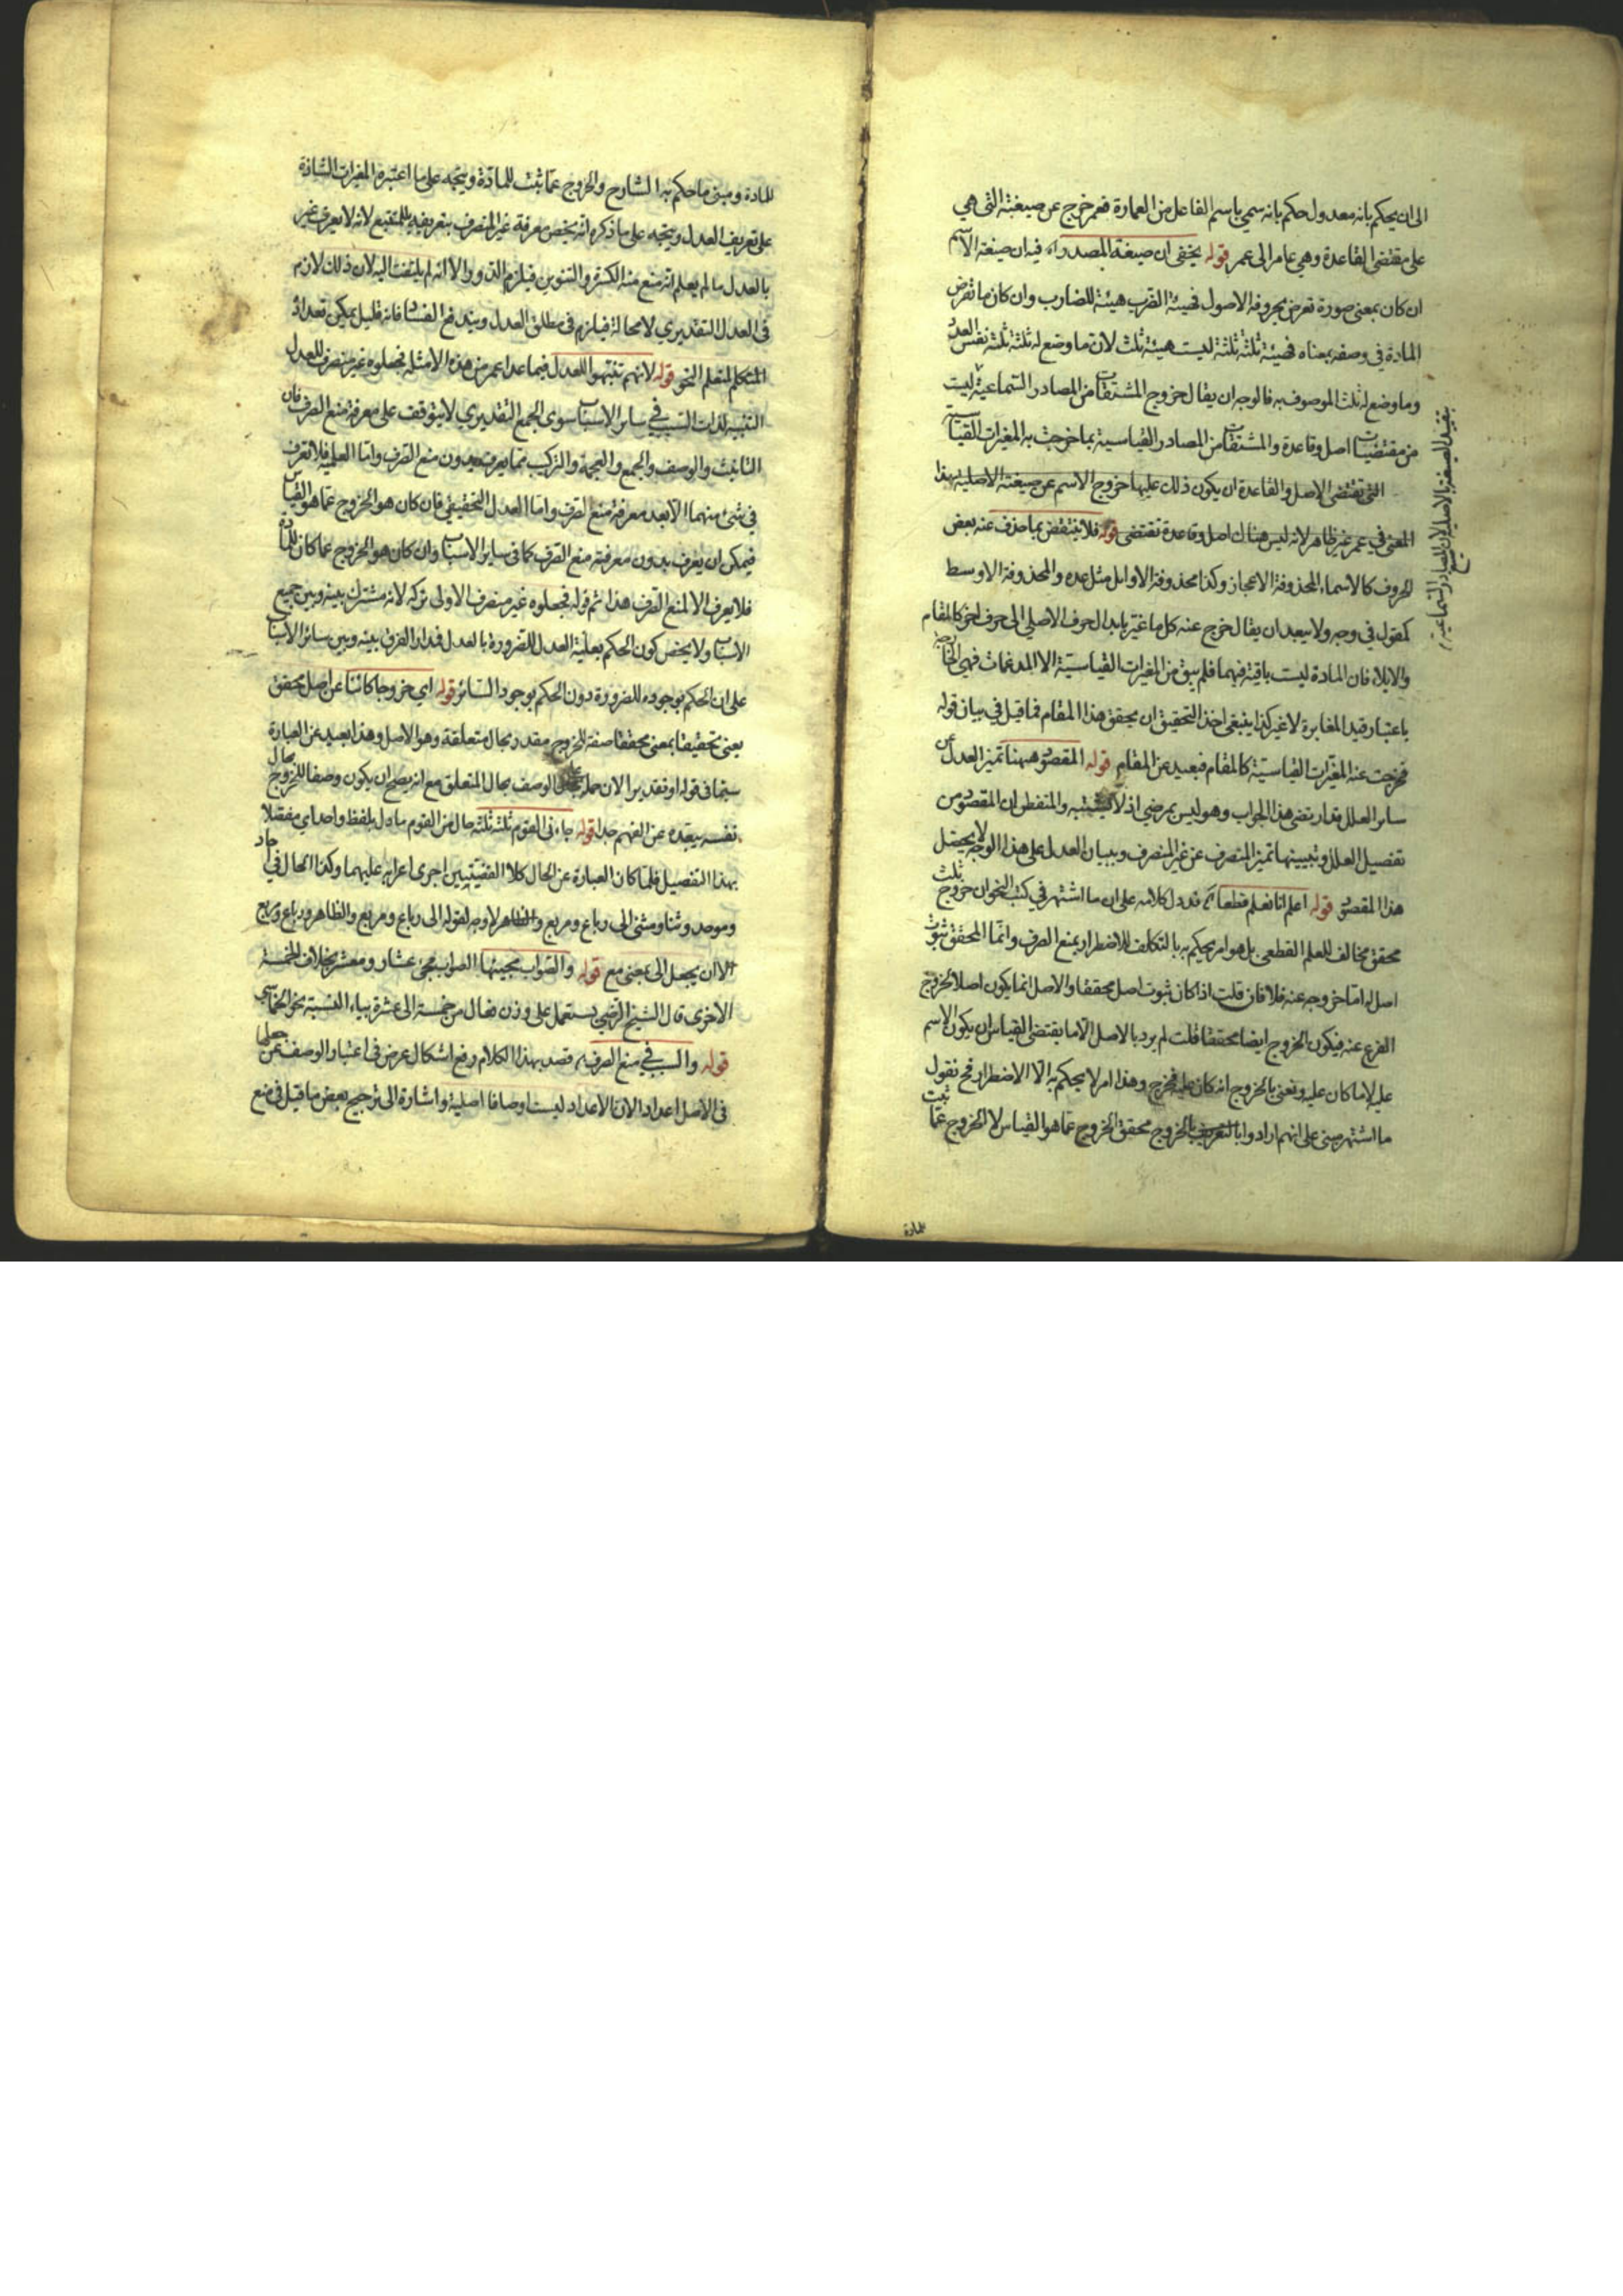 الى ان يحكم بانه معدول حكم بانه سمي باسم الفاعل من العمارة فعمر خرج عن صيغته التي هي
على مقتضى القاعدة وهي عامر الى عمر قوله يخفى ان صيغة المصدر اه فيه ان صيغة الاسم
ان كان بمعنى صورة تعرض بحروفه الاصول فهيئة الضرب هيئة للضارب وان كان ما تعرض
المادة في وصفه بمعناه فهيئة ثلثة ثلثة ليست هيئة ثلث لان ما وضع له ثلثة ثلثة نفس العدد
وما وضع له ثلث الموصوف به فالوجه ان يقال خروج المشتقات من المصادر السماعية ليست
من مقتضيات اصل وقاعدة والمشتقات من المصادر القياسية بما خرجت به المغيرات القياسية
التي تقتضي الاصل والقاعدة ان يكون ذلك عليها خروج الاسم عن صيغته الاصلية بهذا
المعنى في عمر غير ظاهر لانه ليس هناك اصل وقاعدة تقتضي قوله فلا ينتقض بما حذف عنه بعض
الحروف كالاسماء المحذوفة الاعجاز وكذا محذوفة الاوايل مثل عدة والمحذوفة الاوسط
كمقول في وجه ولا يبعد ان يقال خرج عنه كل ما غير بابدال حرف الاصلي الى حرف اخر كالمقام
والابلاء فان المادة ليست باقية فيهما فلم يبق من المغيرات القياسية الا المدغمات فهي الخارجة
باعتبار قيد المغايرة لا غير كذا ينبغي اخذ التحقيق ان يحقق هذا المقام فما قيل في بيان قوله
فخرجت عنه المغيرات القياسية كالمقام فبعيد عن المقام قوله المقصود ههنا تميز العدل عن
ساير العلل قد ارتضى هذا الجواب وهو ليس بمرضي اذ لا يشتبه والمتفطن ان المقصود من
تفصيل العلل وتبيينها تميز المنصرف عن غير المنصرف وببيان العدل على هذا الوجه لا يحصل
هذا المقصود قوله اعلم انا نعلم قطعا اه قد دل كلامه على ان ما اشتهر في كتب النحو ان خروج ثلث
محقق مخالف للعلم القطعي بل هو امر يحكم به بالتكلف للاضطرار بمنع الصرف وانما المحقق ثبوت
اصل له اما خروجه عنه فلا فان قلت اذا كان ثبوت اصل محققا والاصل انما يكون اصلا لخروج
الفرع عنه فيكون الخروج ايضا محققا قلت لم يرد بالاصل الا ما يقتضي القياس ان يكون الاسم
عليه لا ما كان عليه ونعني بالخروج انه كان عليه فخرج وهذا امر لا يحكم به الا الاضطرار فح نقول
ما اشتهر مبني على انهم ارادوا بالخروج محقق الخروج عما هو القياس لا الخروج عما ثبت
للمادة
بتقييد الصيغة بالاصلية لان المصادر السماعية
للمادة ومبنى ما حكم به الشارح والخروج عما ثبت للمادة ويتجه على ما اعتبره المغيرات الشاذة
على تعريف العدل ويتجه على ما ذكره انه يختص معرفة غير المنصرف بتعريفه بالمتتبع لانه لا يعرف غير
بالعدل ما لم يعلم انه منع منه الكسرة والتنوين فيلزم الدور والا انه لم يلتفت اليه لان ذلك لازم
في العدل التقديري لا محالة فيلزم في مطلق العدل ويندفع الفساد فانه قليل يمكن تعداد
المتكلم لمتعلم النحو قوله لانهم تنبهوا للعدل فيما عدا عمر من هذه الامثلة فجعلوه غير منصرف للعدل
التنبيه لذات السبب في سائر الاسباب سوى الجمع التقديري لا يتوقف على معرفة منع الصرف فان
التانيث والوصف والجمع والعجمة والتركيب مما يعرف بدون منع الصرف واما العلمية فلا تعرف
في شئ منهما الا بعد معرفة منع الصرف واما العدل التحقيقي فان كان هو الخروج عما هو القياس
فيمكن ان يعرف بدون معرفة منع الصرف كما في ساير الاسباب وان كان هو الخروج عما كان للمادة
فلا يعرف الا لمنع الصرف هذا ثم قوله فجعلوه غير منصرف الاولى تركه لانه مشترك بينه وبين جميع
الاسباب ولا يختص كون الحكم بعلية العدل للضرورة بالعدل فمدار الفرق بينه وبين سائر الاسباب
على ان الحكم بوجوده للضرورة دون الحكم بوجود السائر قوله اي خروجا كائنا عن اصل محقق
يعني تحقيقا بمعنى محققا صفة للخروج مقدر بحال متعلقه وهو الاصل وهذا بعيد عن العبارة
سيما في قوله او تقديرا لان حمله على الوصف بحال المتعلق مع انه يصح ان يكون وصفا للخروج بحال
نفسه يبعده عن الفهم جدا قوله جاءني القوم ثلثة ثلثة حال من القوم ما دل بلفظ واحد اي مفصلا
بهذا التفصيل فلما كان العبارة عن الحال كلا اللفظين اجرى اعرابه عليهما وكذا الحال في احاد
وموحد وثنا ومثنى الى رباع ومربع والظاهر لا وجه لقوله الى رباع ومربع والظاهر ورباع ومربع
الا ان يجعل الى بمعنى مع قوله والصواب مجيئها الصواب مجئ عشار ومعشر بخلاف الخمسة
الاخرى قال الشيخ الرضي يستعمل على وزن فعال من خمسة الى عشرة بياء النسبة نحو الخماسي
قوله والسبب في منع الصرف اه قصد بهذا الكلام رفع اشكال عرض في اعتبار الوصف عمن جعلها
في الاصل اعدادا لان الاعداد ليست اوصافا اصلية واشارة الى ترجيح بعض ما قيل في منع